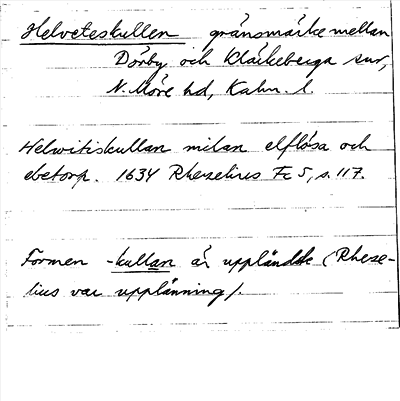 Helveteskullen gränsmärke mellan
Dörby och Kläckeberga snr,
N. Möre hd, Kalm. l.
Helwitiskullan milan elflösa och
ebetorp. 1634 Rhezelius Fc 5, s. 117.
Formen -kullan är uppländsk (Rheze-
lius var upplänning).